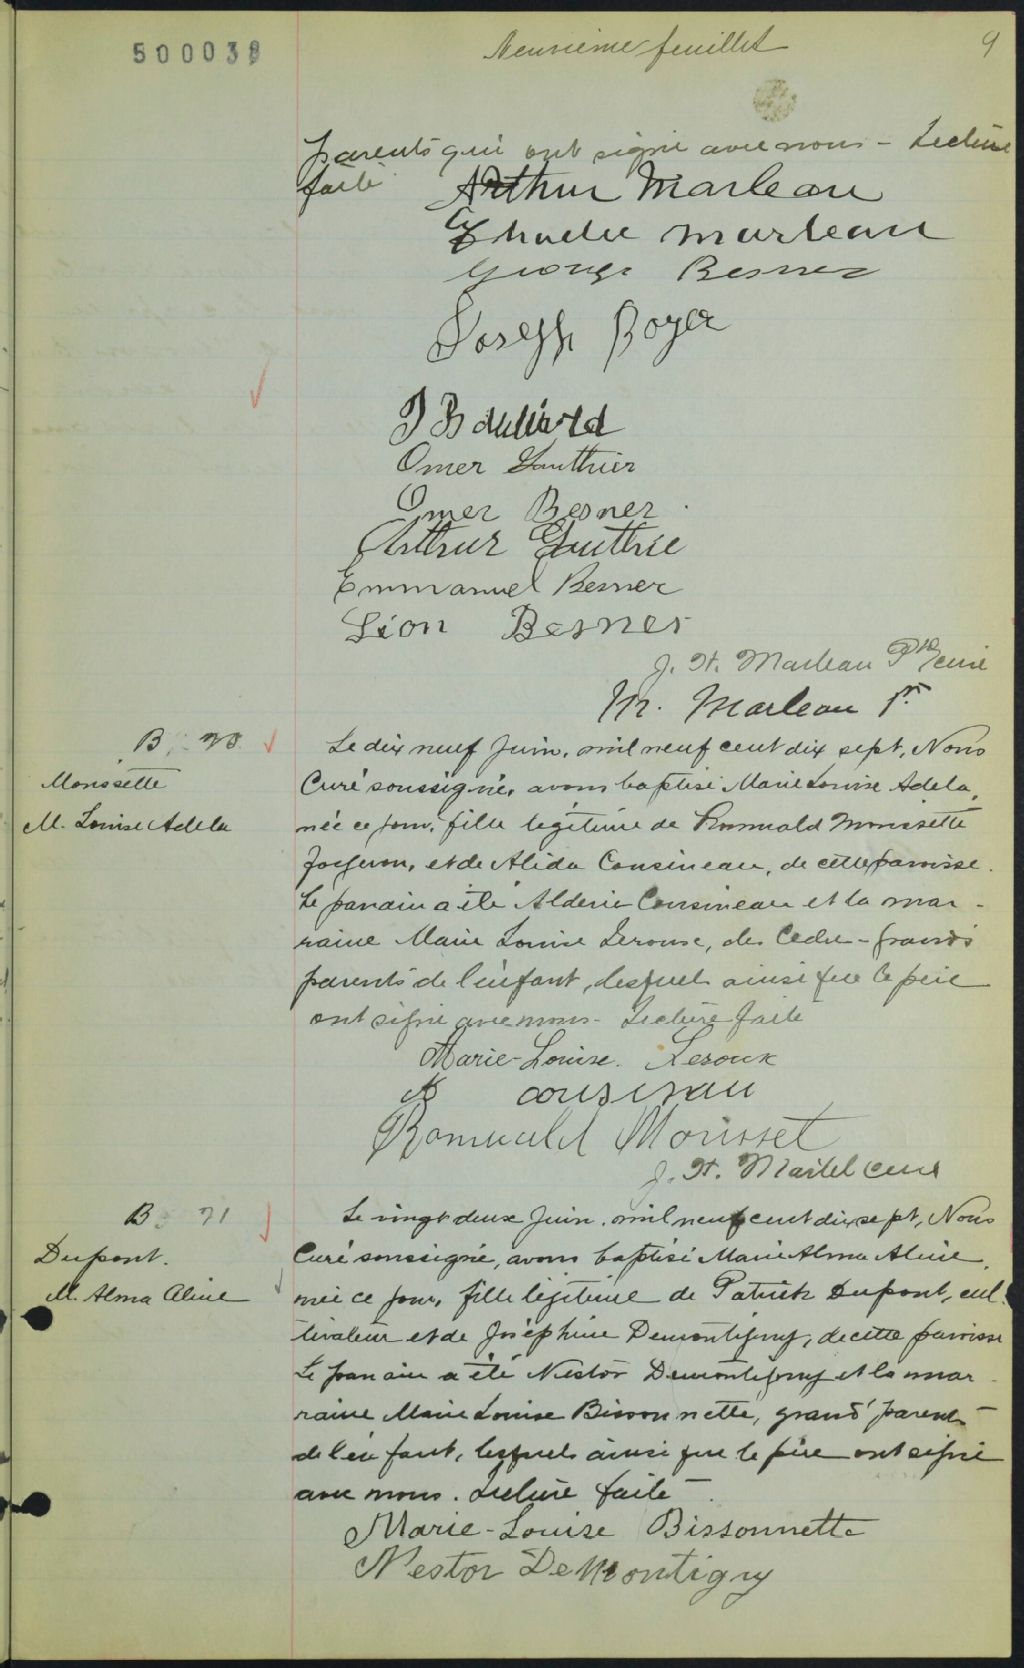 500039
Neuvième feuillet
9
parents qui ont signé avec nous - Lecture
faite
Arthur Marleau
Marleau
George Besner
Joseph Boyer
J B
Omer Gauthier
Omer Besner
Arthur
Emmanuel Besner
Léon Besner
J. H. Marleau Ptre curé
M. Marleau
B 70
Morissette
M. Louise Adela
Le dix neuf Juin, mil neuf cent dix sept, Nous
Curé soussigné, avons baptisé Marie Louise Adela,
née ce jour, fille légitime de Romuald Morissette
forgeron, et de Alida Cousineau, de cette paroisse.
Le parrain a été Alderic Cousineau et la mar-
raine Marie Louise Leroux, des Cèdre - grands
parents de l'enfant, lesquels ainsi que le père
ont signé avec nous - Lecture faite
Marie-Louise. Leroux
A cousineau
Romuald Morisset
J. H. Martel curé
B 71
Dupont.
M. Alma Aline
Le vingt deux Juin, mil neuf cent dix sept, Nous
Curé soussigné, avons baptisé Marie Alma Aline,
née ce jour, fille légitime de Patrick Dupont, cul-
tivateur et de Joséphine Demontigny, de cette paroisse
Le parrain a été Nestor Demontigny et la mar-
raine Marie Louise Bissonnette, grand' parents
de l'enfant, lesquels ainsi que le père ont signé
avec nous. Lecture faite -
Marie-Louise Bissonnette
Nestor DeMontigny